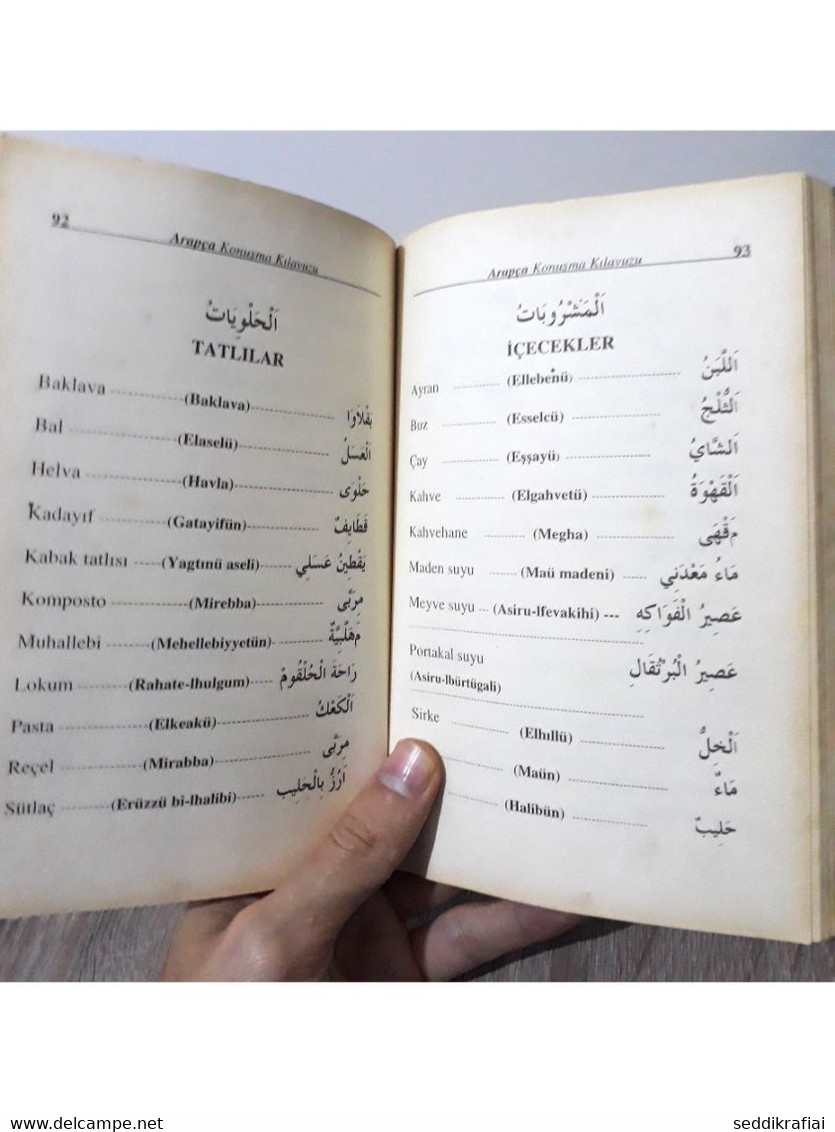 92
Arapça Konuşma Kılavuzu
اَلْحَلْوِيَاتُ
TATLILAR
Baklava ----------(Baklava)---------- بَقْلاَوَا
Bal ----------(Elaselü)---------- اَلْعَسَلُ
Helva ----------(Havla)---------- حَلْوَى
Kadayıf ----------(Gatayifün)---------- قَطَايِفٌ
Kabak tatlısı ------(Yagtınü aseli)------ يَقْطِينُ عَسَلِي
Komposto ----------(Mirebba)---------- مِرَبَّى
Muhallebi --------(Mehellebiyyetün)- مَهَلَّبِيَّةٌ
Lokum ----------(Rahate-lhulgum)------ رَاحَةَ الْحُلْقُومْ
Pasta ----------(Elkeakü)---------- اَلْكَعْكُ
Reçel ----------(Mirabba)---------- مِرَبَّى
Sütlaç ----------(Erüzzü bi-lhalibi)----- اَرُزُّ بِالْحَلِيبِ
Arapça Konuşma Kılavuzu
93
اَلْمَشْرُوبَاتُ
İÇECEKLER
Ayran ---------- (Ellebenü) ---------- اَللَّبَنُ
Buz ---------- (Esselcü) ---------- اَلثُّلْجُ
Çay ---------- (Eşşayü) ---------- اَلشَّايُ
Kahve ---------- (Elgahvetü) ---------- اَلْقَهْوَةُ
Kahvehane ---------- (Megha) ---------- مَقْهَى
Maden suyu ------- (Maü madeni) ----- مَاءُ مَعْدَنِي
Meyve suyu --- (Asiru-lfevakihi) --- عَصِيرُ الْفَوَاكِهِ
Portakal suyu عَصِيرُ الْبُرْتُقَالِ
(Asiru-lbürtügali)
Sirke ---------- (Elhıllü) ---------- اَلْخِلُّ
(Maün) ---------- مَاءٌ
(Halibün) ---------- حَلِيبٌ
www.delcampe.net
seddikrafiai